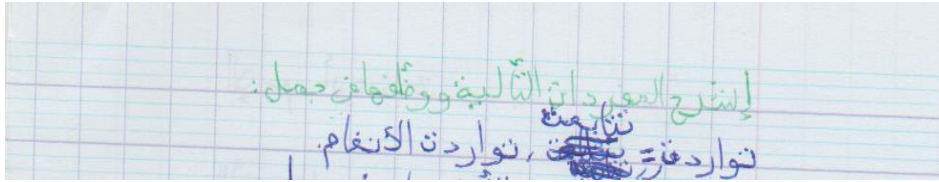 إشرح المفردات التالية ووظفها في جمل:
تواردت = تتابعت ، تواردت الأنغام.